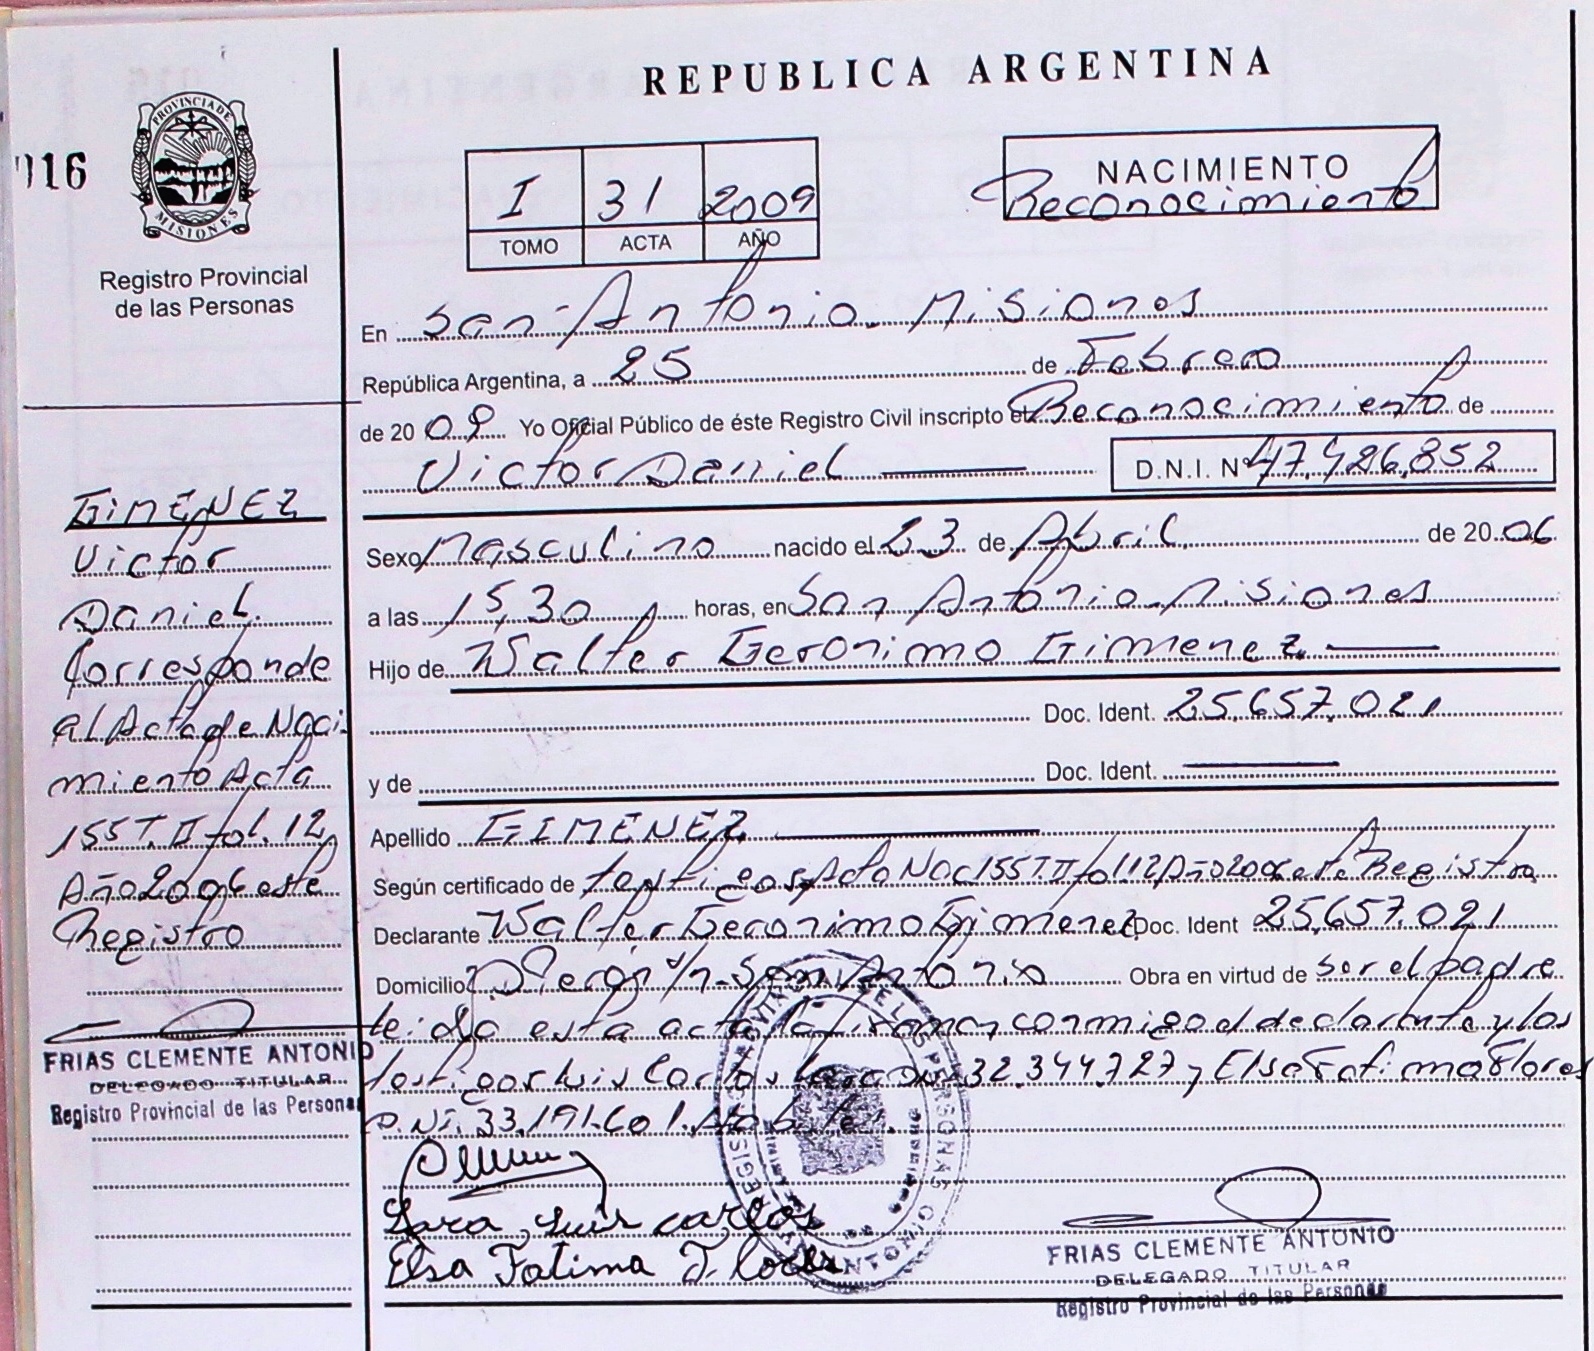 REPUBLICA ARGENTINA
016
PROVINCIA DE
MISIONES
Registro Provincial
de las Personas
I 31 2009
TOMO ACTA AÑO
NACIMIENTO
Reconocimiento
En San Antonio Misiones
República Argentina, a 25 de Febrero
de 2009 Yo Oficial Público de éste Registro Civil inscripto el Reconocimiento de
Victor Daniel D.N.I. Nº 47.426.852
Sexo Masculino nacido el 23 de Abril de 2006
a las 15,30 horas, en San Antonio Misiones
Hijo de Walter Geronimo Gimenez
Doc. Ident. 25.657.021
y de Doc. Ident.
Apellido GIMENEZ
Según certificado de testigos, Acta Nac 155 T. II fol 112 Año 2006 este Registro
Declarante Walter Geronimo Gimenez Doc. Ident 25.657.021
Domicilio Pierón s/n San Antonio Obra en virtud de ser el padre
leida esta acta la firman conmigo el declarante y los
testigos Luis Carlos Lara DNI 32.344.727 y Elsa Fatima Flores
D.NI. 33.191.601.
Lara, Luis carlos
Elsa Fatima Flores
FRIAS CLEMENTE ANTONIO
DELEGADO TITULAR
Registro Provincial de las Personas
GIMENEZ
Victor
Daniel.
Corresponde
al Acta de Naci-
miento Acta
155 T. II fol. 12
Año 2006 este
Registro
FRIAS CLEMENTE ANTONIO
DELEGADO TITULAR
Registro Provincial de las Personas